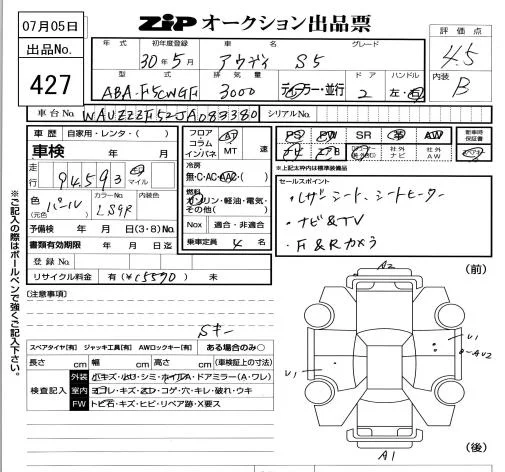 07月05日
ZIP オークション出品票
出品No.
427
評価点
4.5
内装
B
年式 初年度登録 車名 グレード
30年5月 アウディ S5
型式 排気量 ドア ハンドル
ABA-F5CWGF 3000 ディーラー・並行 2 左・右
車台No. WAUZZZF52JA083380 シリアルNo.
車歴 自家用・レンタ・( )
車検 年 月
走行 94,593 マイル
色(元色) パール カラーNo. LS9R 内装色
予備検 年 月 日(3・8)No.
書類有効期限 年 月 日迄
登録No.
リサイクル料金 有(¥15590) 未
フロア コラム インパネ AT MT 速
冷房
無・C・AC・AAC・( )
燃料
ガソリン・軽油・電気・その他( )
Nox 適合・非適合
乗車定員 4 名
PS PW SR 革 AW
ナビ AW
新車時保証書
*上記太枠内は標準装備品
セールスポイント
・レザーシート、シートヒーター
・ナビ&TV
・F&Rカメラ
※ご記入の際はボールペンで強くご記入下さい。
[注意事項]
Sキー
スペアタイヤ[有] ジャッキ工具[有] AWロックキー[有] ある場合のみ○
長さ cm 幅 cm 高さ cm (車検証上の寸法)
検査記入
外装 小キズ・小U・シミ・ホイルA・ドアミラー(A・ワレ)
室内 ヨゴレ・キズ・スレ・コゲ・穴・キレ・破れ・ウキ
FW トビ石・キズ・ヒビ・リペア跡・X要ス
(前)
A2
U1
U1
A1
(後)